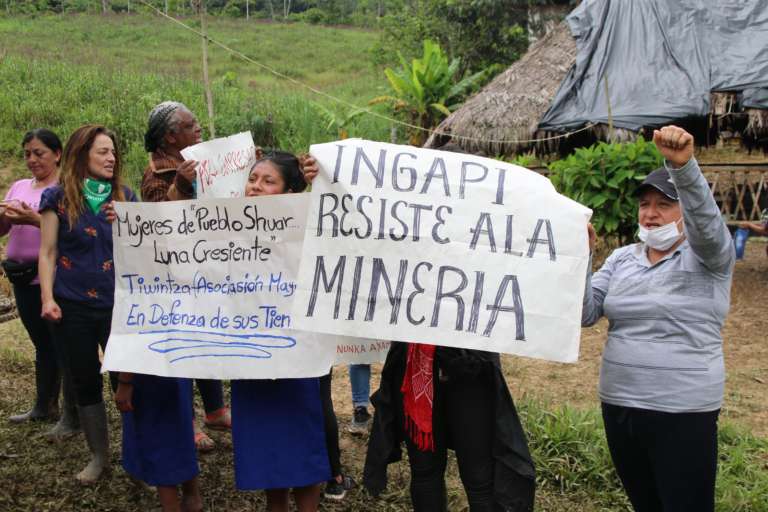 Mujeres de "Pueblo Shuar
Luna Cresiente"
Tiwintza-(Asociasión May
En Defenza de sus Tien
INGAPI
RESISTE ALA
MINERIA
NUNKA